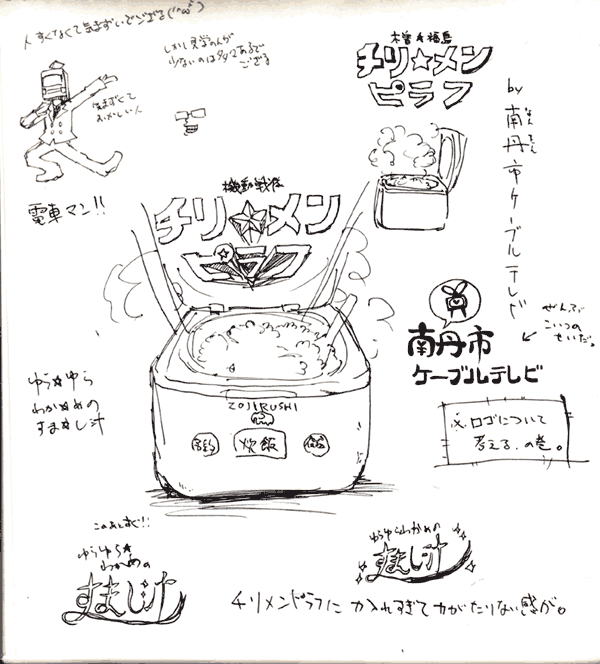 人すくなくて気まずいでござる(´^ω^`)
しかし見学の人が
少ないのは多々あるで
ござる
気まずくて
おかしい人
電車マン!!
チリ☆メン
ピラフ
by 南丹市ケーブルテレビ
なんたん
機動戦隊
チリ☆メン
ピラフ
ぜんぶ
こいつの
せいだ。
南丹市
ケーブルテレビ
ゆら☆ゆら
わか☆めの
すま☆し汁
ZOJIRUSHI
炊飯
ロゴについて
考える の巻。
このあとすぐ!!
ゆらゆら☆
わかめの
すまし汁
ゆらゆらわかめの
すまし汁
チリメンピラフに 力入れすぎて力がたりない感が。